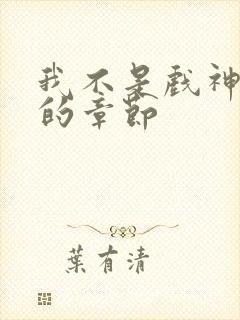 我不是戲神
的章節
葉有清